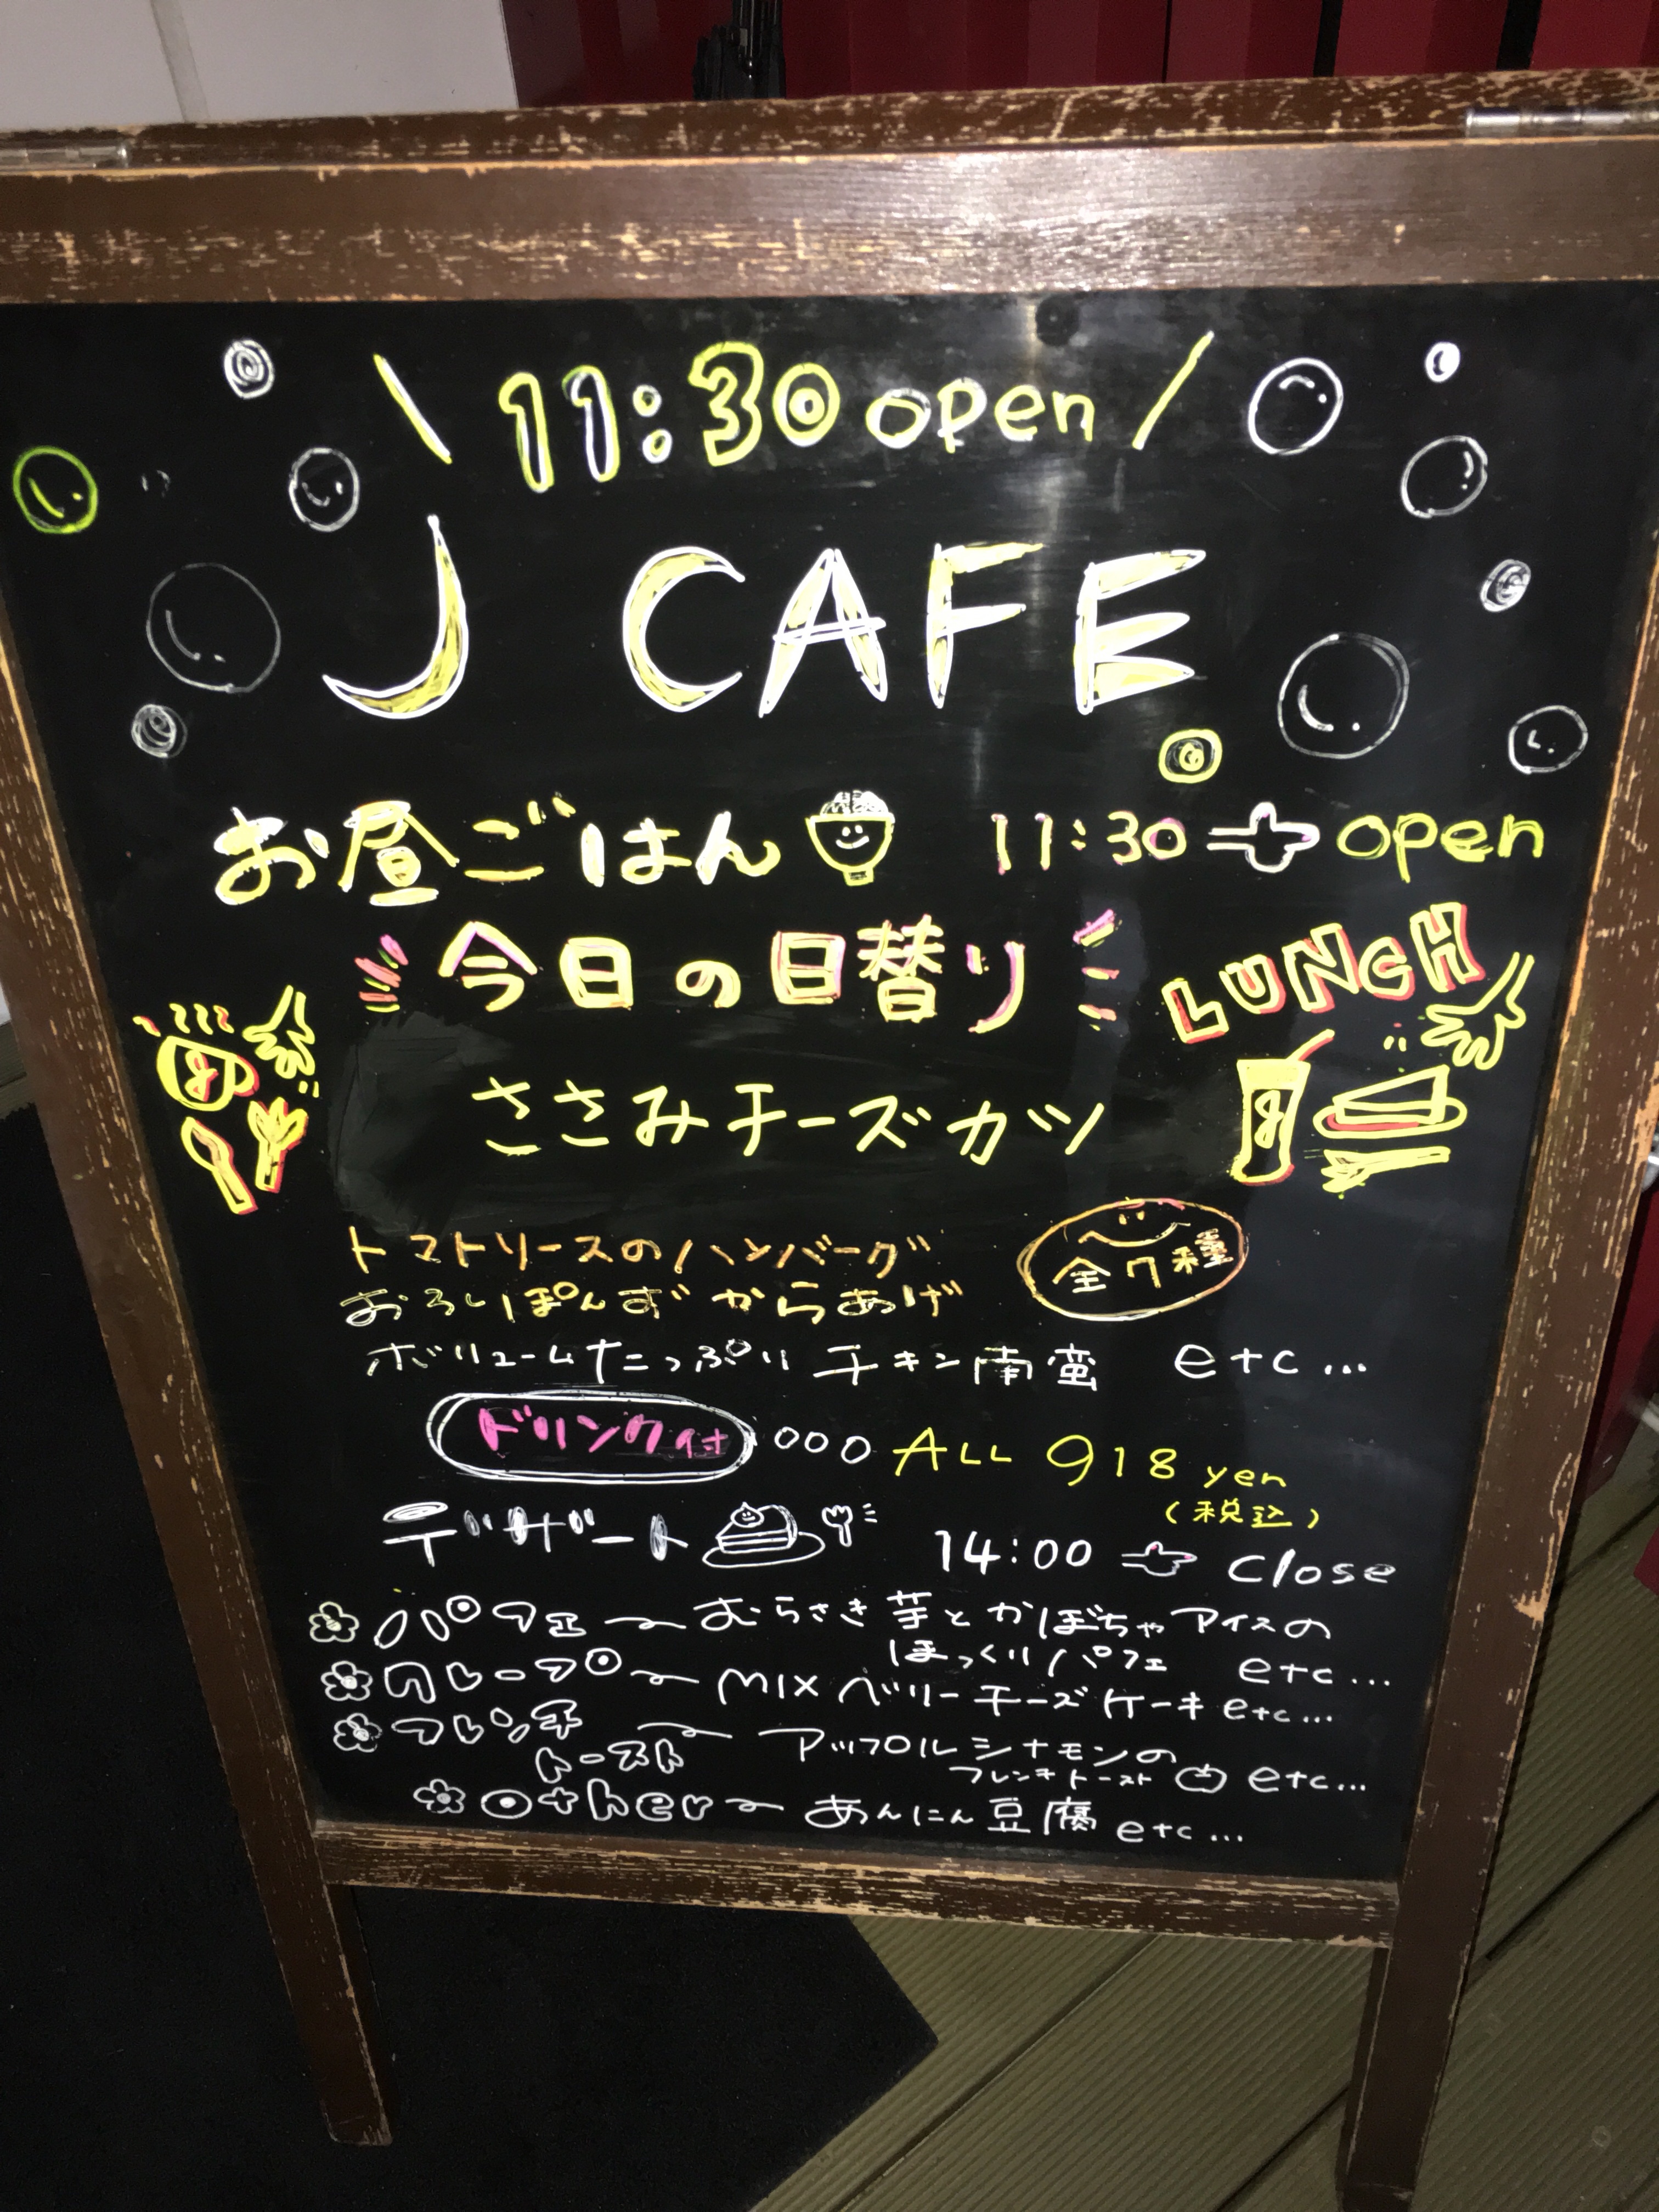 11:30 open
J CAFE
お昼ごはん 11:30 open
今日の日替り
LUNCH
ささみチーズカツ
トマトソースのハンバーグ
おろしぽんずからあげ
全7種
ボリュームたっぷりチキン南蛮 etc...
ドリンク付 ooo ALL 918 yen
(税込)
デザート 14:00 close
パフェ 〜 むらさき芋とかぼちゃアイスの
ほっくりパフェ etc...
クレープ 〜 MIX ベリーチーズケーキ etc...
フレンチ
トースト 〜 アップルシナモンの
フレンチトースト etc...
other 〜 あんにん豆腐 etc...